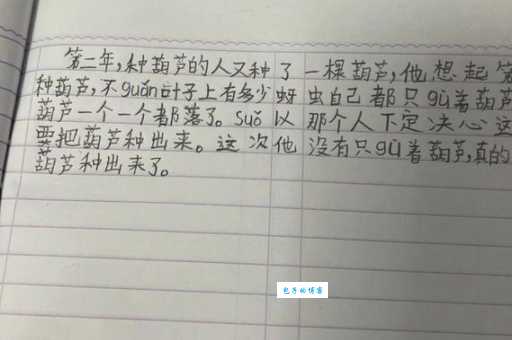 第二年,种葫芦的人又种了一棵葫芦,他想起第
种葫芦,不guǎn叶子上有多少蚜虫自己都只gù着葫芦
葫芦一个一个都落了。suǒ以那个人下定决心这
要把葫芦种出来。这次他没有只gù着葫芦,真的
葫芦种出来了。
包子的博客